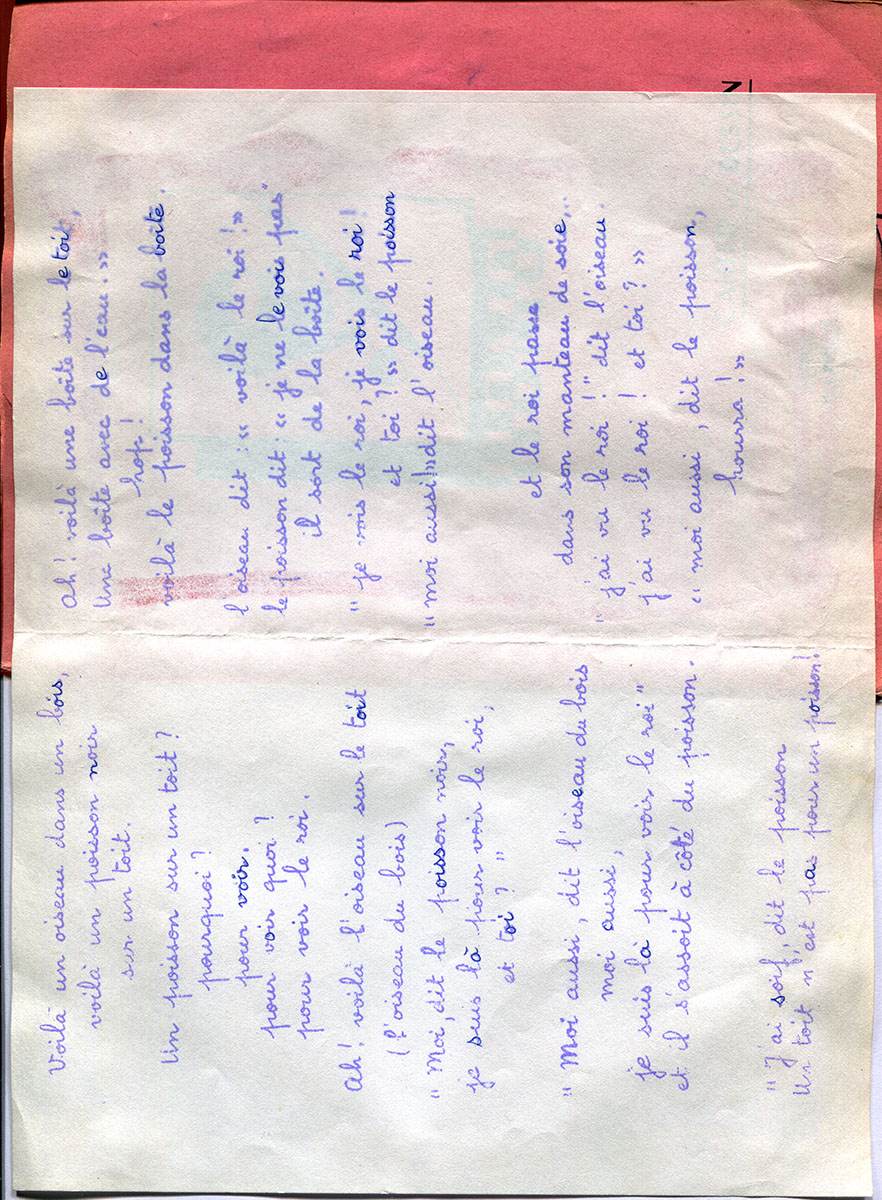 Voilà un oiseau dans un bois,
voilà un poisson noir
sur un toit.
Un poisson sur un toit ?
pourquoi ?
pour voir.
pour voir quoi ?
pour voir le roi.
Ah ! voilà l'oiseau sur le toit
(l'oiseau du bois)
" Moi, dit le poisson noir,
je suis là pour voir le roi,
et toi ? "
" Moi aussi, dit l'oiseau du bois
moi aussi,
je suis là pour voir le roi "
et il s'assoit à côté du poisson.
" J'ai soif, dit le poisson
Un toit n'est pas pour un poisson !
Ah ! voilà une boîte sur le toit,
Une boîte avec de l'eau. »
hop !
voilà le poisson dans la boîte.
l'oiseau dit : « voilà le roi ! »
le poisson dit : « je ne le vois pas "
il sort de la boîte.
" je vois le roi, je vois le roi !
et toi ? » dit le poisson
" moi aussi ! » dit l'oiseau.
et le roi passe
dans son manteau de soie,..
" j'ai vu le roi ! " dit l'oiseau.
j'ai vu le roi ! et toi ? »
« moi aussi, dit le poisson,
hourra ! »